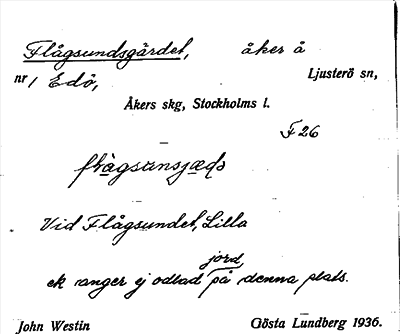 Flågsundsgärdet, åker å
nr 1 Edö, Ljusterö sn,
Åkers skg, Stockholms l.
F 26
Vid Flågsundet, Lilla
jord
ej odlad på denna plats.
John Westin Gösta Lundberg 1936.